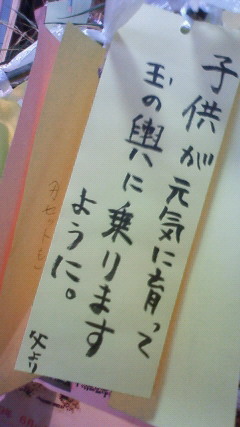 子供が元気に育って
玉の輿に乗ります
ように。
父より